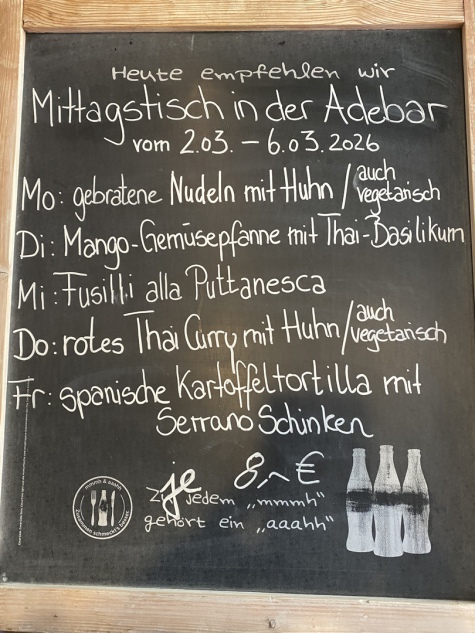 Heute empfehlen wir
Mittagstisch in der Adebar
vom 2.03. – 6.03.2026
Mo: gebratene Nudeln mit Huhn / auch vegetarisch
Di: Mango-Gemüsepfanne mit Thai-Basilikum
Mi: Fusilli alla Puttanesca
Do: rotes Thai Curry mit Huhn / auch vegetarisch
Fr: spanische Kartoffeltortilla mit
Serrano Schinken
je 8,- €
Zu jedem „mmmh“
gehört ein „aaahh“
mmmh & aaahh
Zusammen schmeckt's besser.